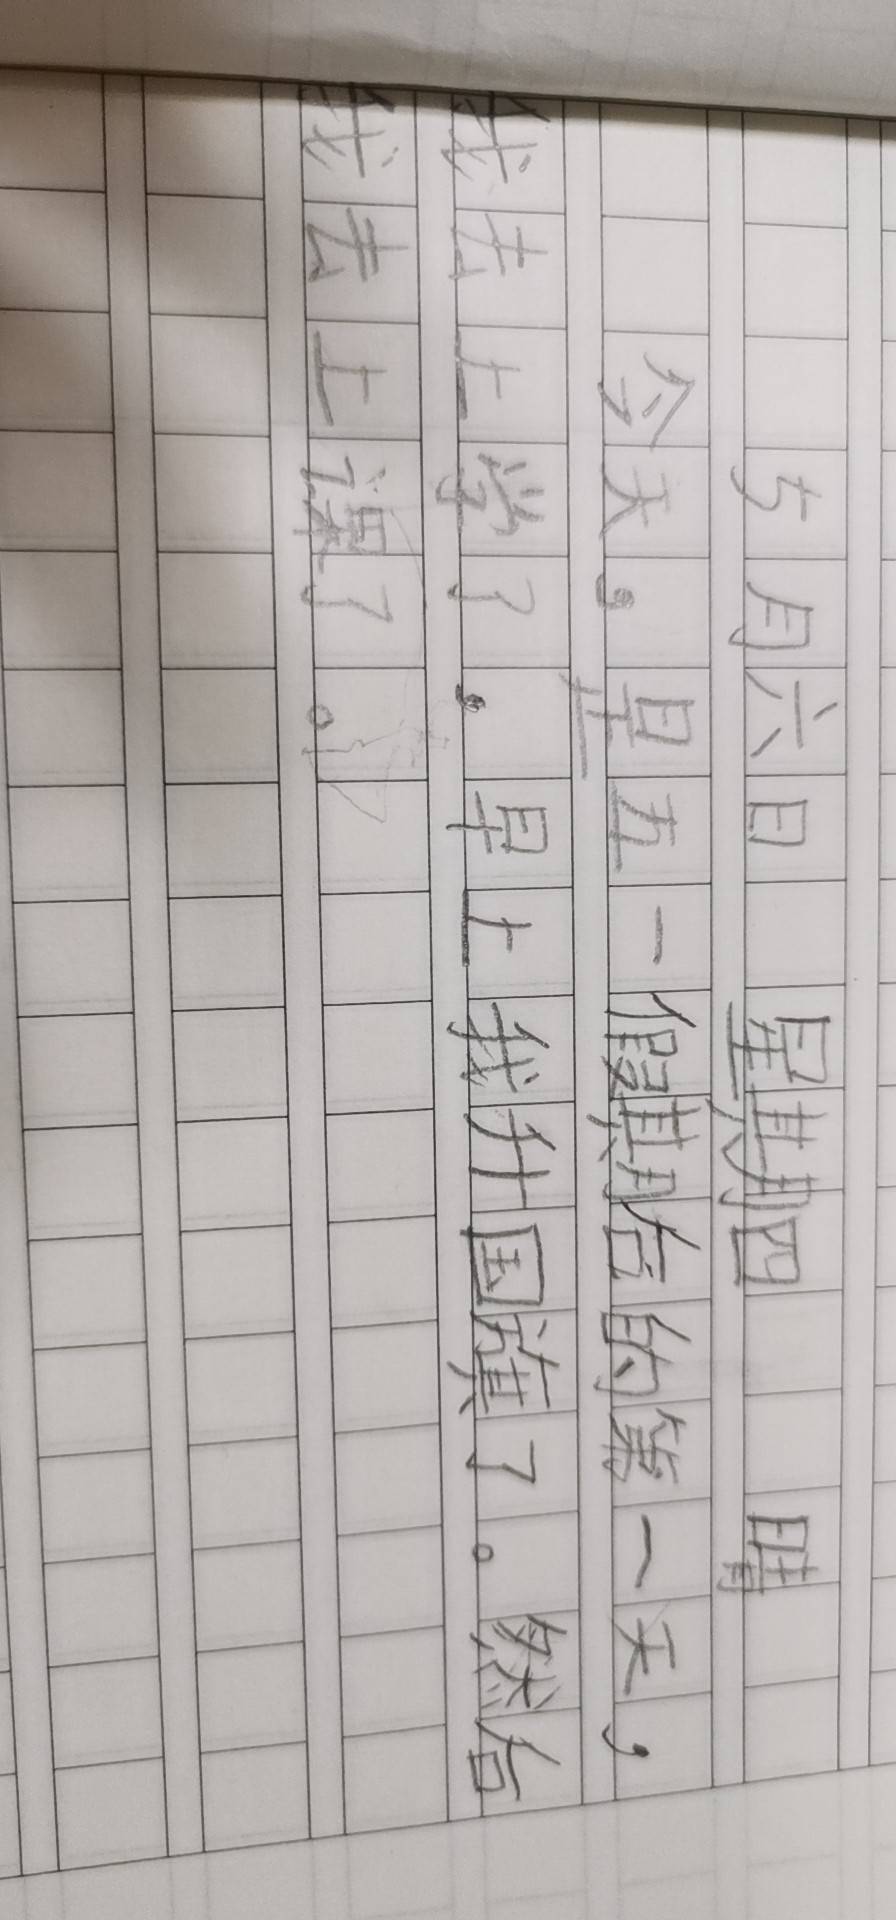 5月六日 星期四 晴
今天,是五一假期后的第一天,
我去上学了,早上我升国旗了。然后
我去上课了。